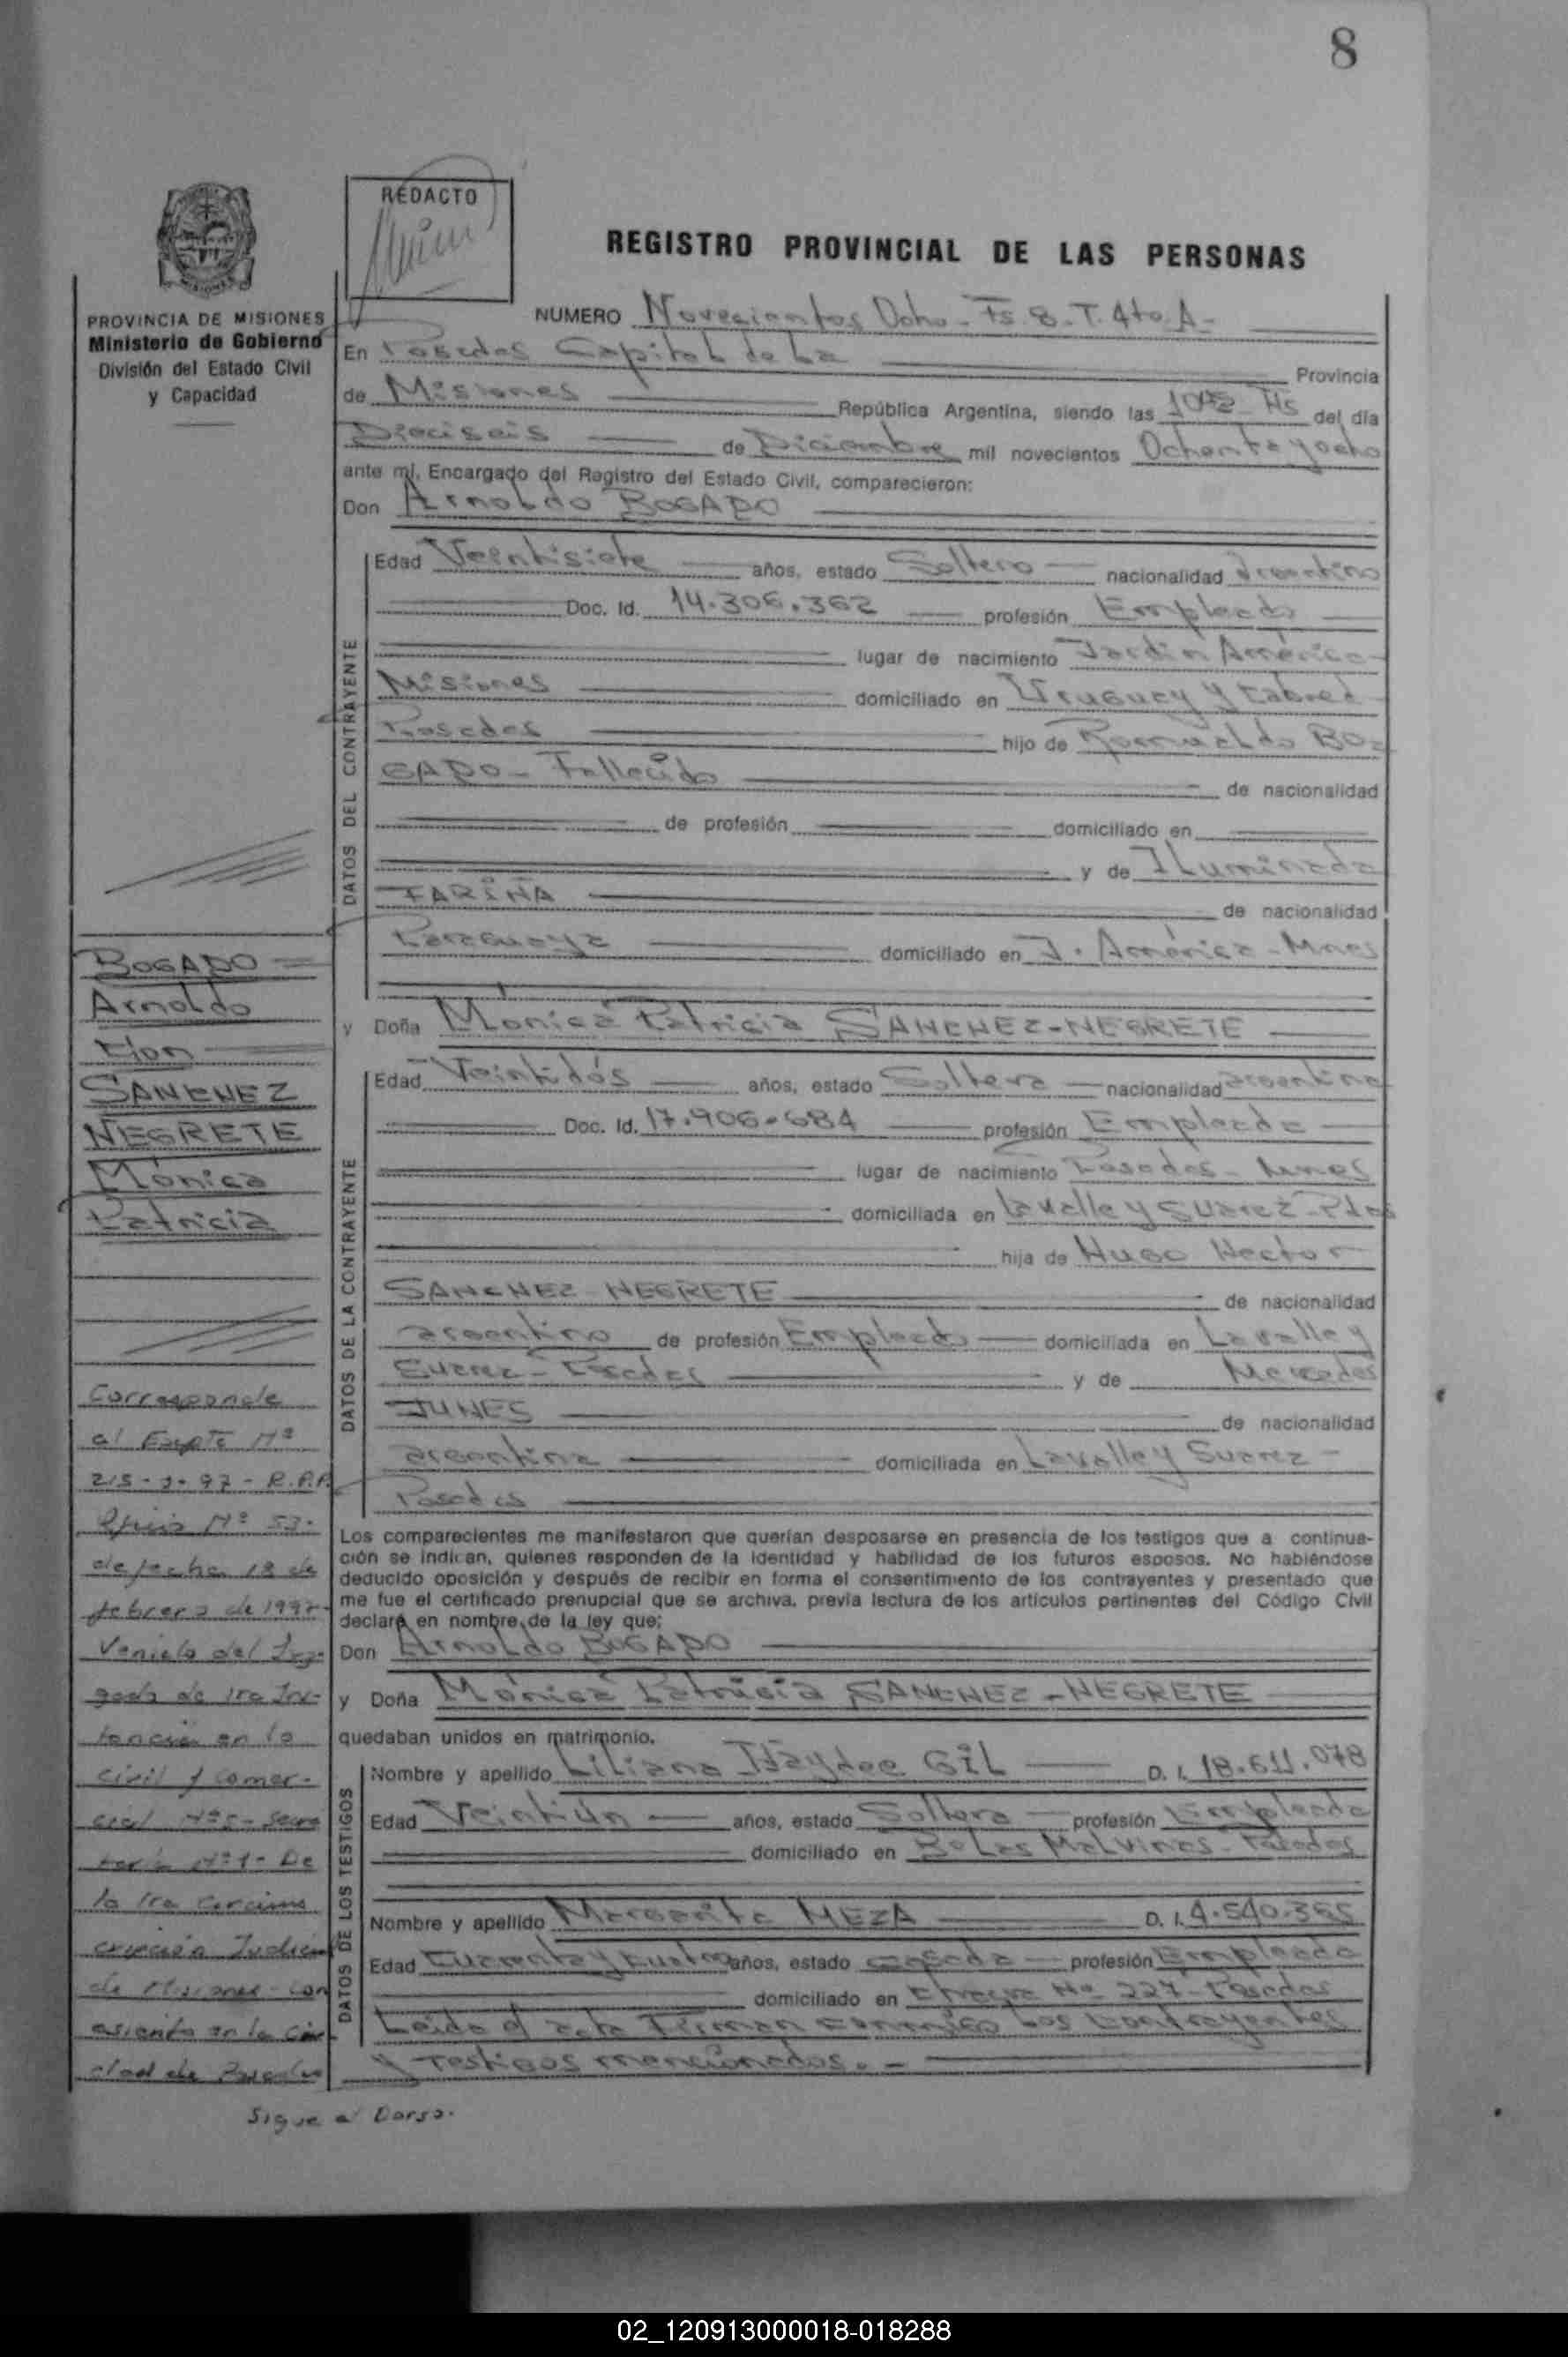 8
REDACTO
REGISTRO PROVINCIAL DE LAS PERSONAS
PROVINCIA DE MISIONES
Ministerio de Gobierno
División del Estado Civil
y Capacidad
NUMERO Novecientos Ocho - Fs. 8 - T. 4to. A -
En Posadas Capital de La Provincia
de Misiones República Argentina, siendo las Hs del día
Dieciseis de Diciembre mil novecientos Ochenta y ocho
ante mí, Encargado del Registro del Estado Civil, comparecieron:
Don Arnoldo BOGADO
DATOS DEL CONTRAYENTE
Edad Veintisiete años, estado Soltero nacionalidad argentino
Doc. Id. 14.306.362 profesión Empleado
lugar de nacimiento Jardín América
Misiones domiciliado en Uruguay y Cabred
Posadas hijo de Romualdo BO-
GADO - Fallecido de nacionalidad
de profesión domiciliado en
y de Iluminada
FARIÑA de nacionalidad
Paraguaya domiciliado en J. América - Mnes
y Doña Mónica Patricia SANCHEZ-NEGRETE
DATOS DE LA CONTRAYENTE
Edad Veintidós años, estado Soltera nacionalidad argentina
Doc. Id. 17.906.684 profesión Empleada
lugar de nacimiento Posadas - Mnes
domiciliada en Lavalle y Suarez - Pdas
hija de Hugo Hector
SANCHEZ-NEGRETE de nacionalidad
argentino de profesión Empleado domiciliada en Lavalle y
Suarez - Posadas y de Mercedes
JUNES de nacionalidad
argentina domiciliada en Lavalle y Suarez -
Posadas
Los comparecientes me manifestaron que querían desposarse en presencia de los testigos que a continua-
ción se indican, quienes responden de la identidad y habilidad de los futuros esposos. No habiéndose
deducido oposición y después de recibir en forma el consentimiento de los contrayentes y presentado que
me fue el certificado prenupcial que se archiva, previa lectura de los artículos pertinentes del Código Civil
declaré en nombre de la ley que:
Don Arnoldo BOGADO
y Doña Mónica Patricia SANCHEZ-NEGRETE
quedaban unidos en matrimonio.
DATOS DE LOS TESTIGOS
Nombre y apellido Liliana Haydee GIL D. I. 18.611.078
Edad Veintiún años, estado Soltera profesión Empleada
domiciliado en Bo Las Malvinas - Posadas
Nombre y apellido Margarita MEZA D. I. 4.540.355
Edad Cuarenta y Cuatro años, estado casada profesión Empleada
domiciliado en No 227 - Posadas
Leída el acta Firman conmigo Los Contrayentes
y Testigos mencionados. -
BOGADO
Arnoldo
con
SANCHEZ
NEGRETE
Mónica
Patricia
Corresponde
al Expte Nº
215-J-97 - R.P.P.
Oficio Nº 53-
de fecha 18 de
febrero de 1997-
Venido del Juz-
gado de 1ra Ins-
tancia en lo
civil y Comer-
cial Nº 5 - Secre
taría Nº 1 - De
la 1ra Circuns
cripción Judicial
de Misiones - con
asiento en la Ciu-
dad de Posadas
Sigue al Dorso.
02_120913000018-018288